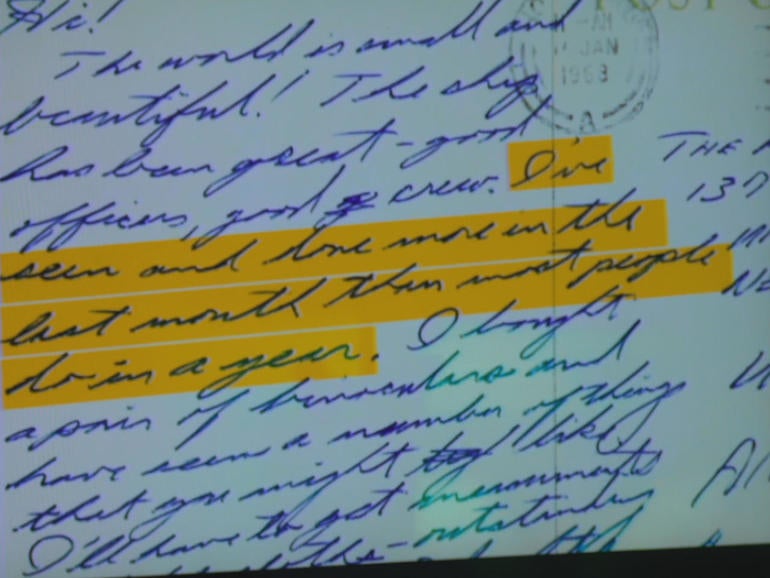 Hi!
The world is small and
beautiful! The ship
has been great - good
officers, good crew. I've
seen and done more in the
last month than most people
do in a year. I bought
a pair of binoculars and
have seen a number of things
that you might like,
I'll have to get measurements
clothes - outstanding
POST
AM
JAN
1968
A
THE
137